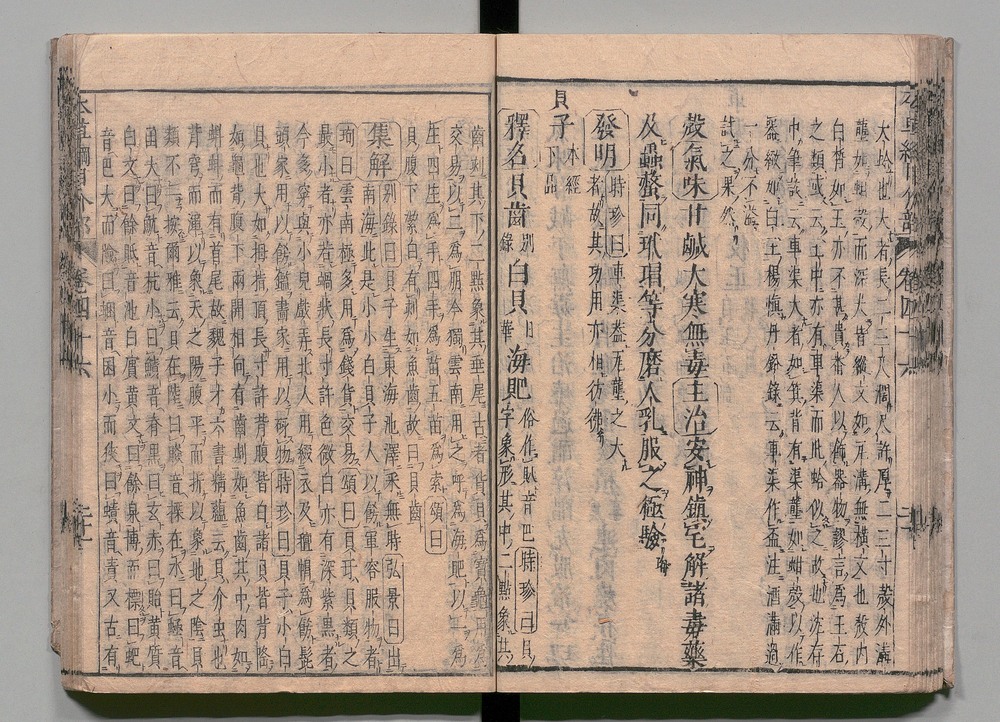 大蛤也大者長二三尺闊尺許厚二三寸殼外溝
壟如蚶殼而深大皆縱文如瓦溝無橫文也殼內
白皙如玉亦不甚貴番人以飾器物謬言爲玉石
之類或云玉中亦有車渠而此蛤似之故也沈存
中筆談云車渠大者如箕背有渠壟如蚶殼以作
器緻如白玉楊慎丹鉛錄云車渠作盃注酒滿過
一分不溢試之果然
殼氣味甘鹹大寒無毒主治安神鎮宅解諸毒藥
及蟲螫同玳瑁等分磨人乳服之極驗
發明時珍曰車渠蓋瓦壟之大者故其功用亦相彷彿
貝子本經下品
釋名貝齒別錄白貝日華海肥俗作𧵅音巴時珍曰貝字象形其中二點象其
齒刻其下二點象其垂尾古者貨貝爲寶龜用爲
交易以二爲朋今獨雲南用之呼爲海肥以一爲
庄四庄爲手四手爲苗五苗爲索頌曰
貝腹下潔白有刻如魚齒故曰貝齒
集解別錄曰貝子生東海池澤采無時弘景曰出
南海此是小小白貝子人以飾軍容服物者
珣曰雲南極多用爲錢貨交易頌曰貝子貝類之
最小者亦若蝸狀長寸許色微白亦有深紫黑者
今多穿與小兒戲弄北人用綴衣及氊帽爲飾髢
頭家用以飾鑑畫家用以砑物時珍曰貝子小白
貝也大如拇指頂長寸許背腹皆白諸貝皆背隆
如龜背腹下兩開相向有齒刻如魚齒其中肉如
蝌蚪而有首尾故魏子才六書精蘊云貝介虫也
背穹而渾以象天之陽腹平而拆以象地之陰貝
類不一按爾雅云貝在陸曰贆音摽在水曰蜬音
函大曰魧音杭小曰鰿音脊黑曰玄赤曰貽黃質
白文曰餘貾音池白質黃文曰餘泉博而標曰蚆
音巴大而險曰蜠音囷小而狹曰蟦音責又古有
卷四十六
卷四十六